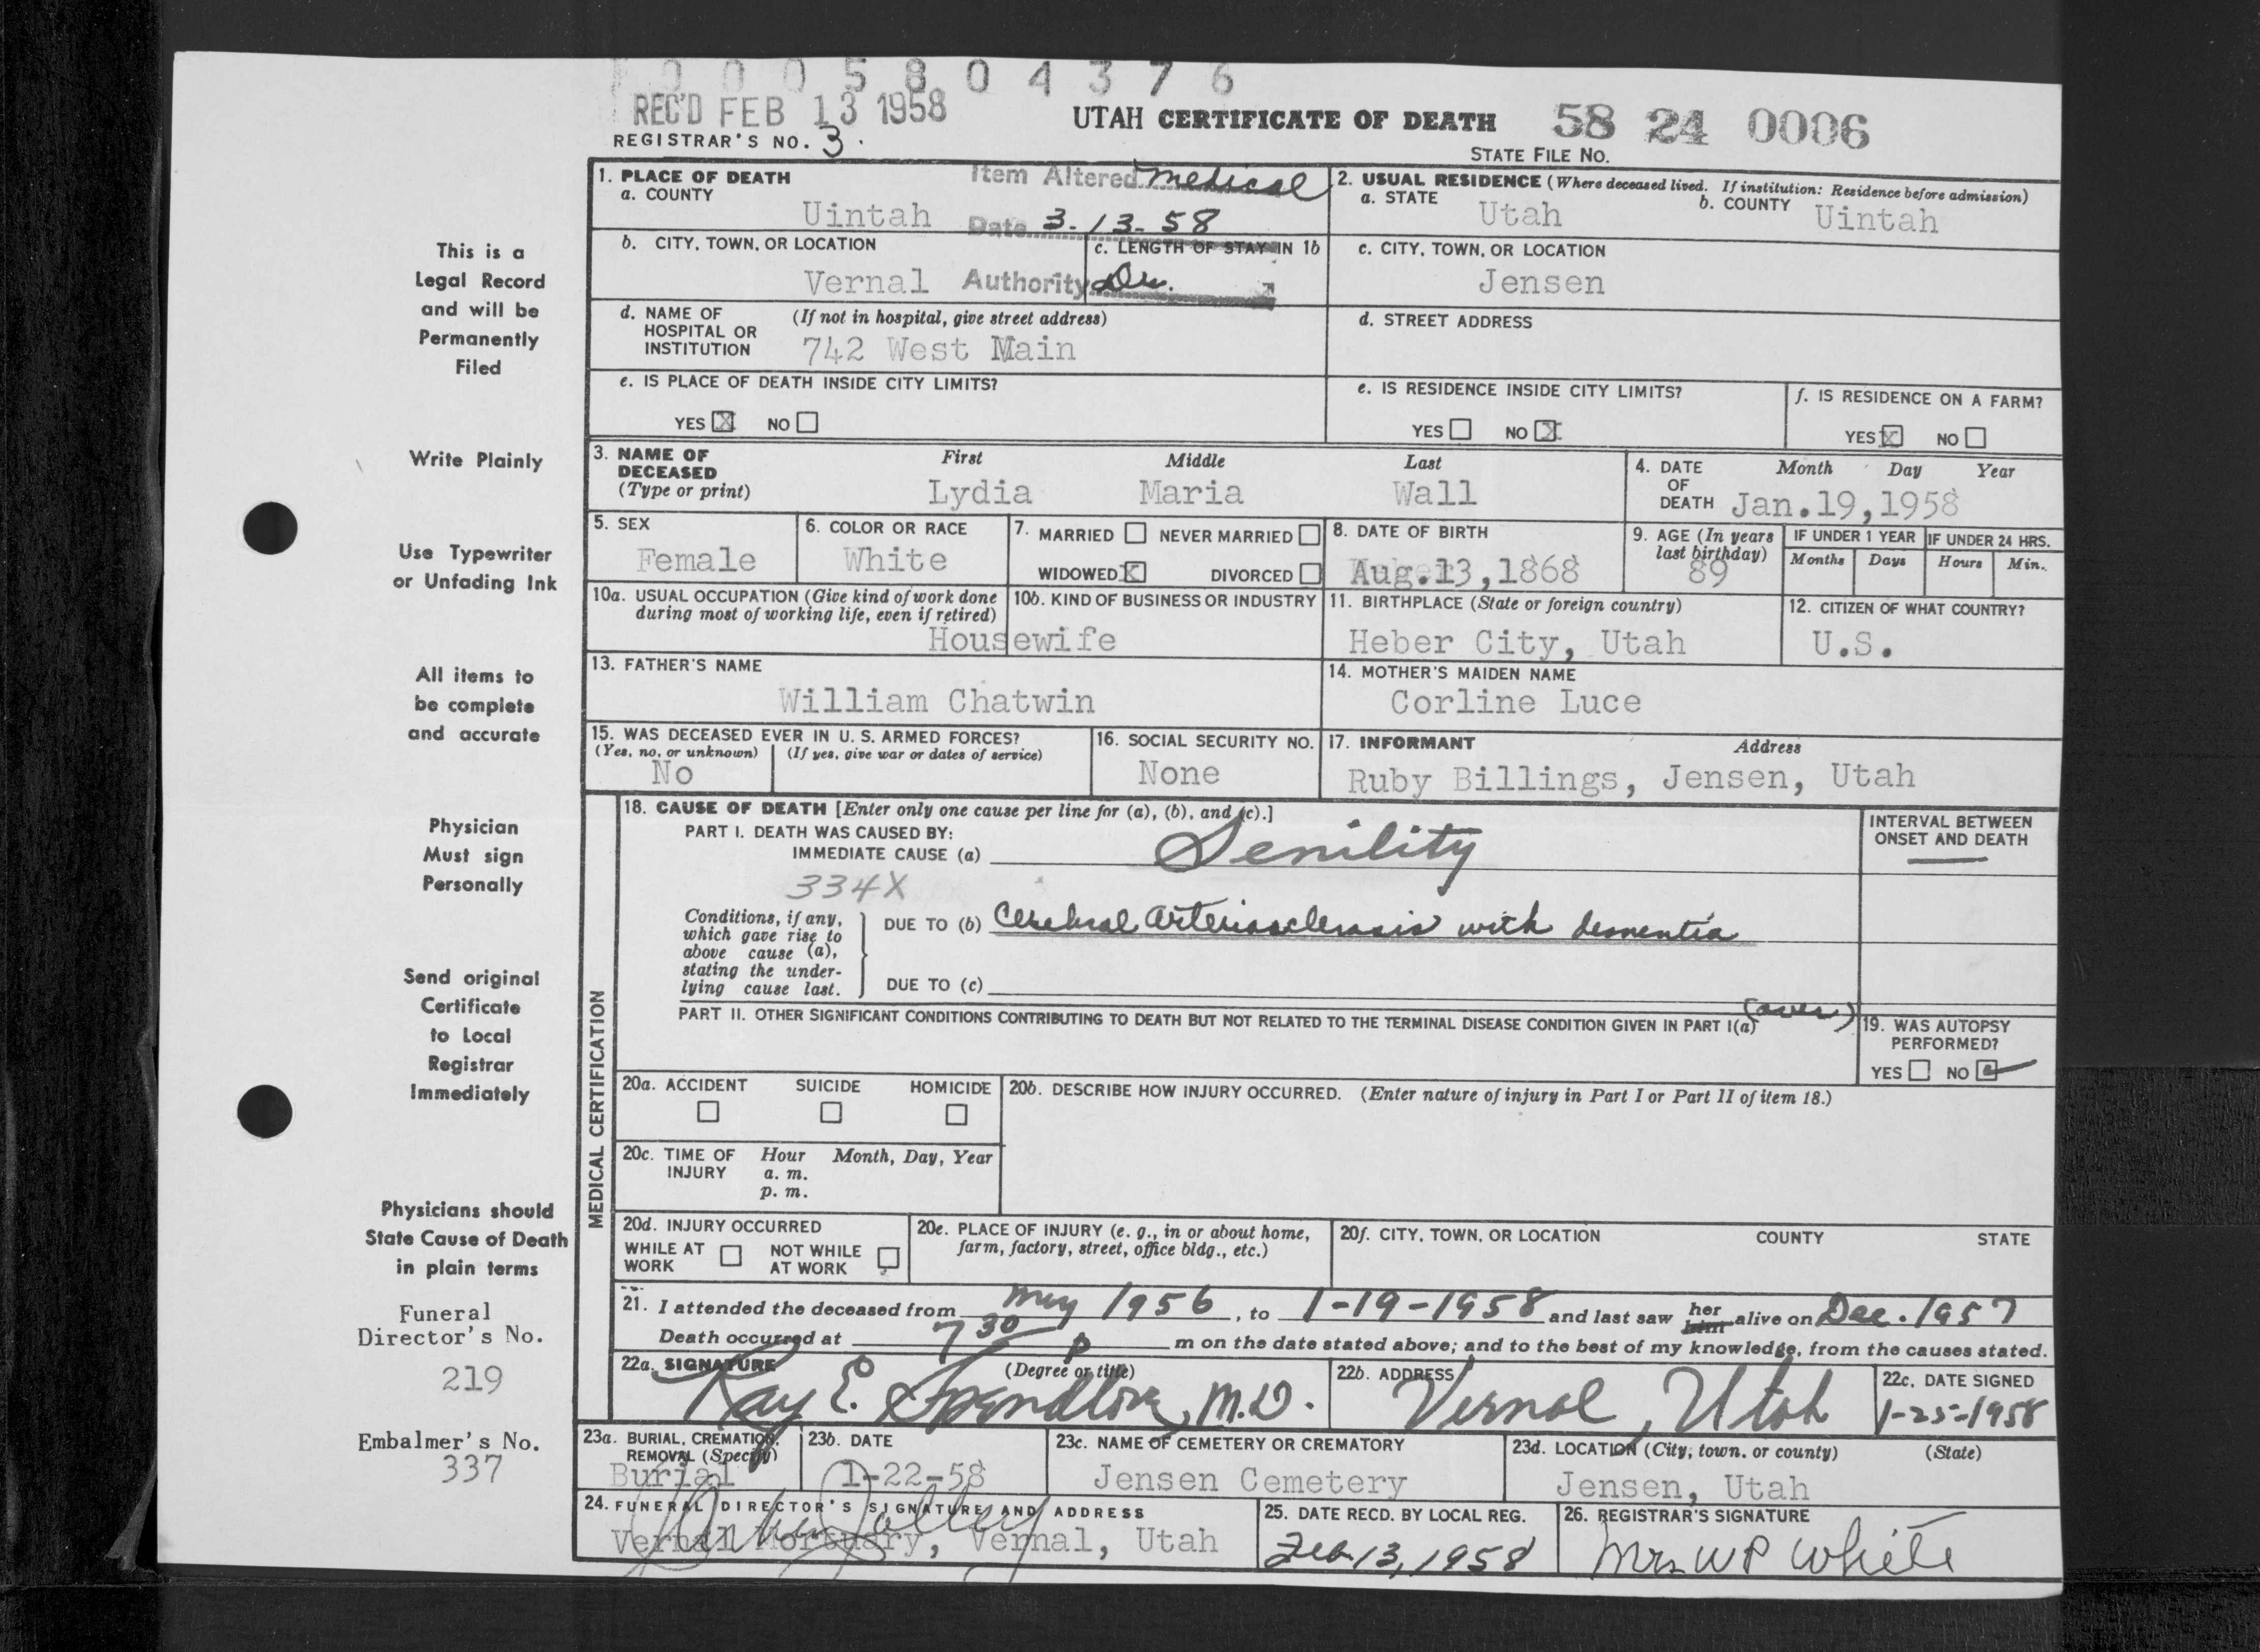 0 0 0 5 8 0 4 3 7 6
REC'D FEB 13 1958
UTAH CERTIFICATE OF DEATH 58 24 0006
REGISTRAR'S NO. 3.
STATE FILE No.
1. PLACE OF DEATH
a. COUNTY
Uintah
Item Altered Medical
Date 3-13-58
2. USUAL RESIDENCE (Where deceased lived. If institution: Residence before admission)
a. STATE Utah b. COUNTY Uintah
b. CITY, TOWN, OR LOCATION
Vernal
Authority Dr.
c. LENGTH OF STAY IN 1b
c. CITY, TOWN, OR LOCATION
Jensen
d. NAME OF HOSPITAL OR INSTITUTION (If not in hospital, give street address)
742 West Main
d. STREET ADDRESS
e. IS PLACE OF DEATH INSIDE CITY LIMITS?
YES X NO
e. IS RESIDENCE INSIDE CITY LIMITS?
YES NO X
f. IS RESIDENCE ON A FARM?
YES X NO
3. NAME OF DECEASED (Type or print)
First Middle Last
Lydia Maria Wall
4. DATE OF DEATH Month Day Year
Jan.19,1958
5. SEX
Female
6. COLOR OR RACE
White
7. MARRIED NEVER MARRIED
WIDOWED X DIVORCED
8. DATE OF BIRTH
Aug.13,1868
9. AGE (In years last birthday)
89
IF UNDER 1 YEAR
Months Days
IF UNDER 24 HRS.
Hours Min.
10a. USUAL OCCUPATION (Give kind of work done during most of working life, even if retired)
Housewife
10b. KIND OF BUSINESS OR INDUSTRY
11. BIRTHPLACE (State or foreign country)
Heber City, Utah
12. CITIZEN OF WHAT COUNTRY?
U.S.
13. FATHER'S NAME
William Chatwin
14. MOTHER'S MAIDEN NAME
Corline Luce
15. WAS DECEASED EVER IN U. S. ARMED FORCES?
(Yes, no, or unknown) (If yes, give war or dates of service)
No
16. SOCIAL SECURITY NO.
None
17. INFORMANT Address
Ruby Billings, Jensen, Utah
MEDICAL CERTIFICATION
18. CAUSE OF DEATH [Enter only one cause per line for (a), (b), and (c).]
PART I. DEATH WAS CAUSED BY:
IMMEDIATE CAUSE (a) Senility
INTERVAL BETWEEN ONSET AND DEATH
334X
Conditions, if any, which gave rise to above cause (a), stating the underlying cause last.
DUE TO (b) Cerebral arteriosclerosis with dementia
DUE TO (c)
(over)
PART II. OTHER SIGNIFICANT CONDITIONS CONTRIBUTING TO DEATH BUT NOT RELATED TO THE TERMINAL DISEASE CONDITION GIVEN IN PART I(a)
19. WAS AUTOPSY PERFORMED?
YES NO
20a. ACCIDENT SUICIDE HOMICIDE
20b. DESCRIBE HOW INJURY OCCURRED. (Enter nature of injury in Part I or Part II of item 18.)
20c. TIME OF INJURY Hour Month, Day, Year
a. m.
p. m.
20d. INJURY OCCURRED
WHILE AT WORK NOT WHILE AT WORK
20e. PLACE OF INJURY (e. g., in or about home, farm, factory, street, office bldg., etc.)
20f. CITY, TOWN, OR LOCATION COUNTY STATE
21. I attended the deceased from May 1956, to 1-19-1958 and last saw her him alive on Dec. 1957
Death occurred at 7 30 P m on the date stated above; and to the best of my knowledge, from the causes stated.
22a. SIGNATURE (Degree or title)
Ray E. Spendlove, M.D.
22b. ADDRESS
Vernal, Utah
22c. DATE SIGNED
1-25-1958
23a. BURIAL, CREMATION, REMOVAL (Specify)
Burial
23b. DATE
1-22-58
23c. NAME OF CEMETERY OR CREMATORY
Jensen Cemetery
23d. LOCATION (City, town, or county) (State)
Jensen, Utah
24. FUNERAL DIRECTOR'S SIGNATURE AND ADDRESS
Vernal Mortuary, Vernal, Utah
25. DATE RECD. BY LOCAL REG.
Feb 13, 1958
26. REGISTRAR'S SIGNATURE
Mrs W P White
This is a
Legal Record
and will be
Permanently
Filed
Write Plainly
Use Typewriter
or Unfading Ink
All items to
be complete
and accurate
Physician
Must sign
Personally
Send original
Certificate
to Local
Registrar
Immediately
Physicians should
State Cause of Death
in plain terms
Funeral
Director's No.
219
Embalmer's No.
337